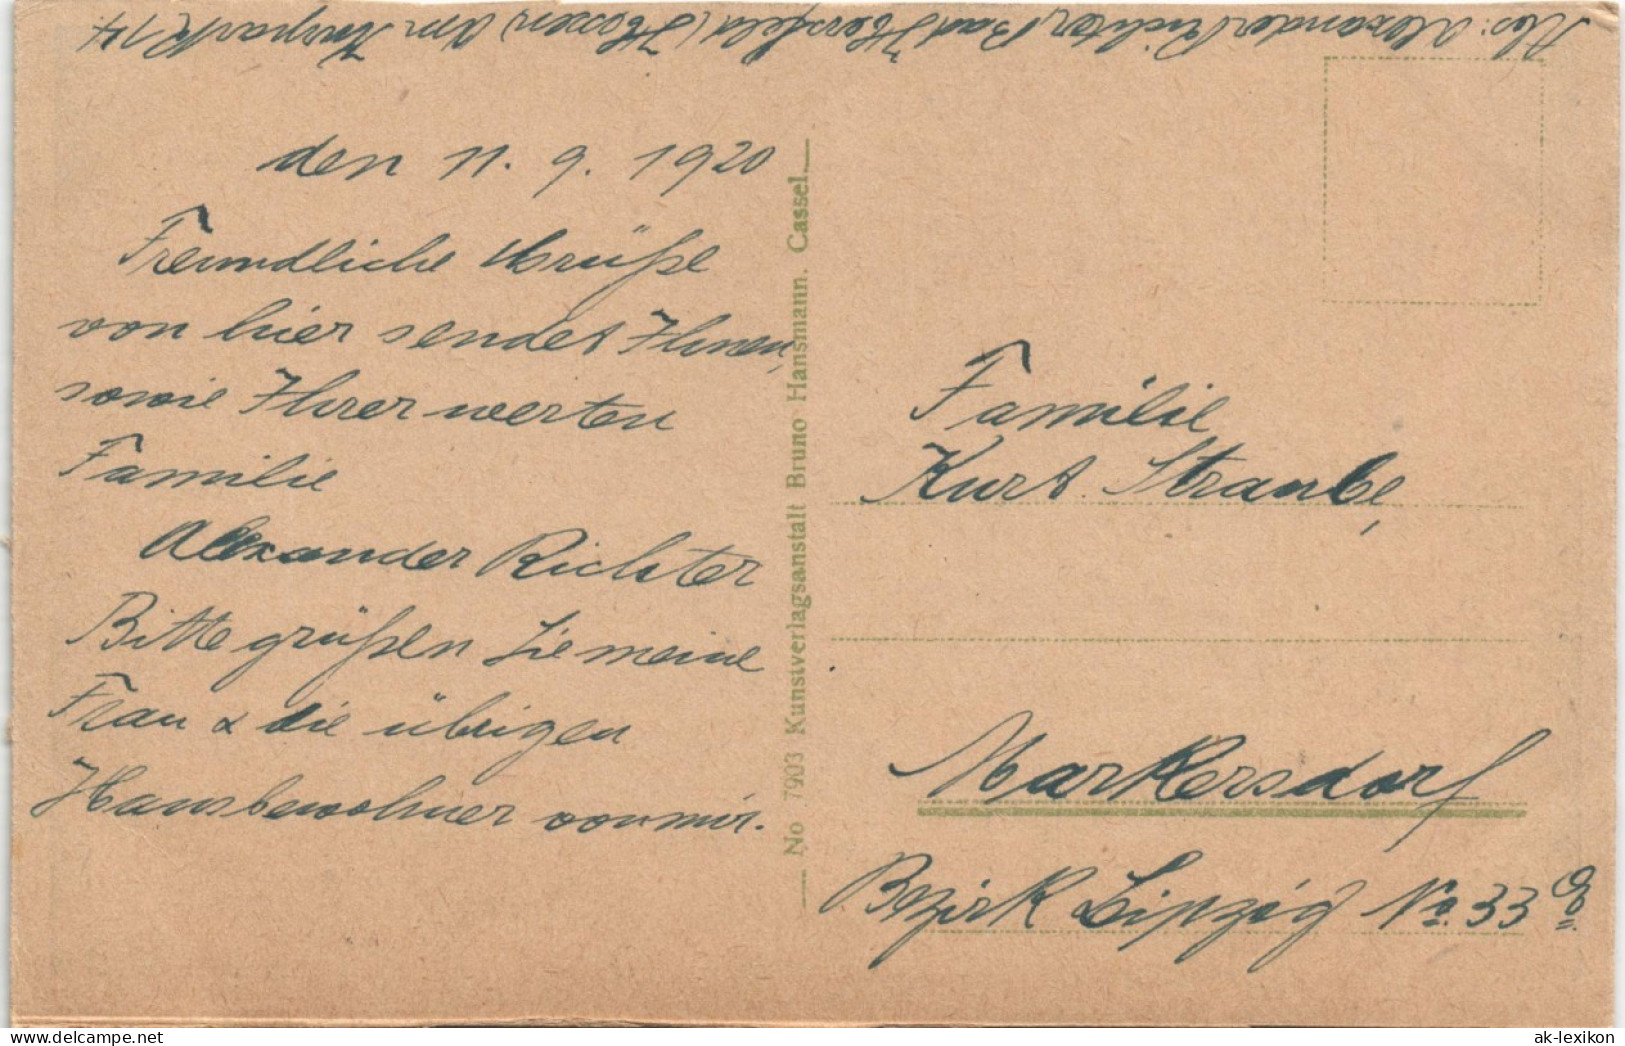 Abs: Alexander Richter, Bad Hersfeld (Hessen) Am Kurpark 14.
den 11. 9. 1920
Freundliche Grüße
von hier sendet Ihnen,
sowie Ihrer werten
Familie
Alexander Richter
Bitte grüßen Sie meine
Frau & die übrigen
Hausbewohner von mir.
No 7903 Kunstverlagsanstalt Bruno Hansmann, Cassel.
Familie
Kurt Straube,
Markersdorf
Bezirk Leipzig No. 33
ak-lexikon
www.delcampe.net